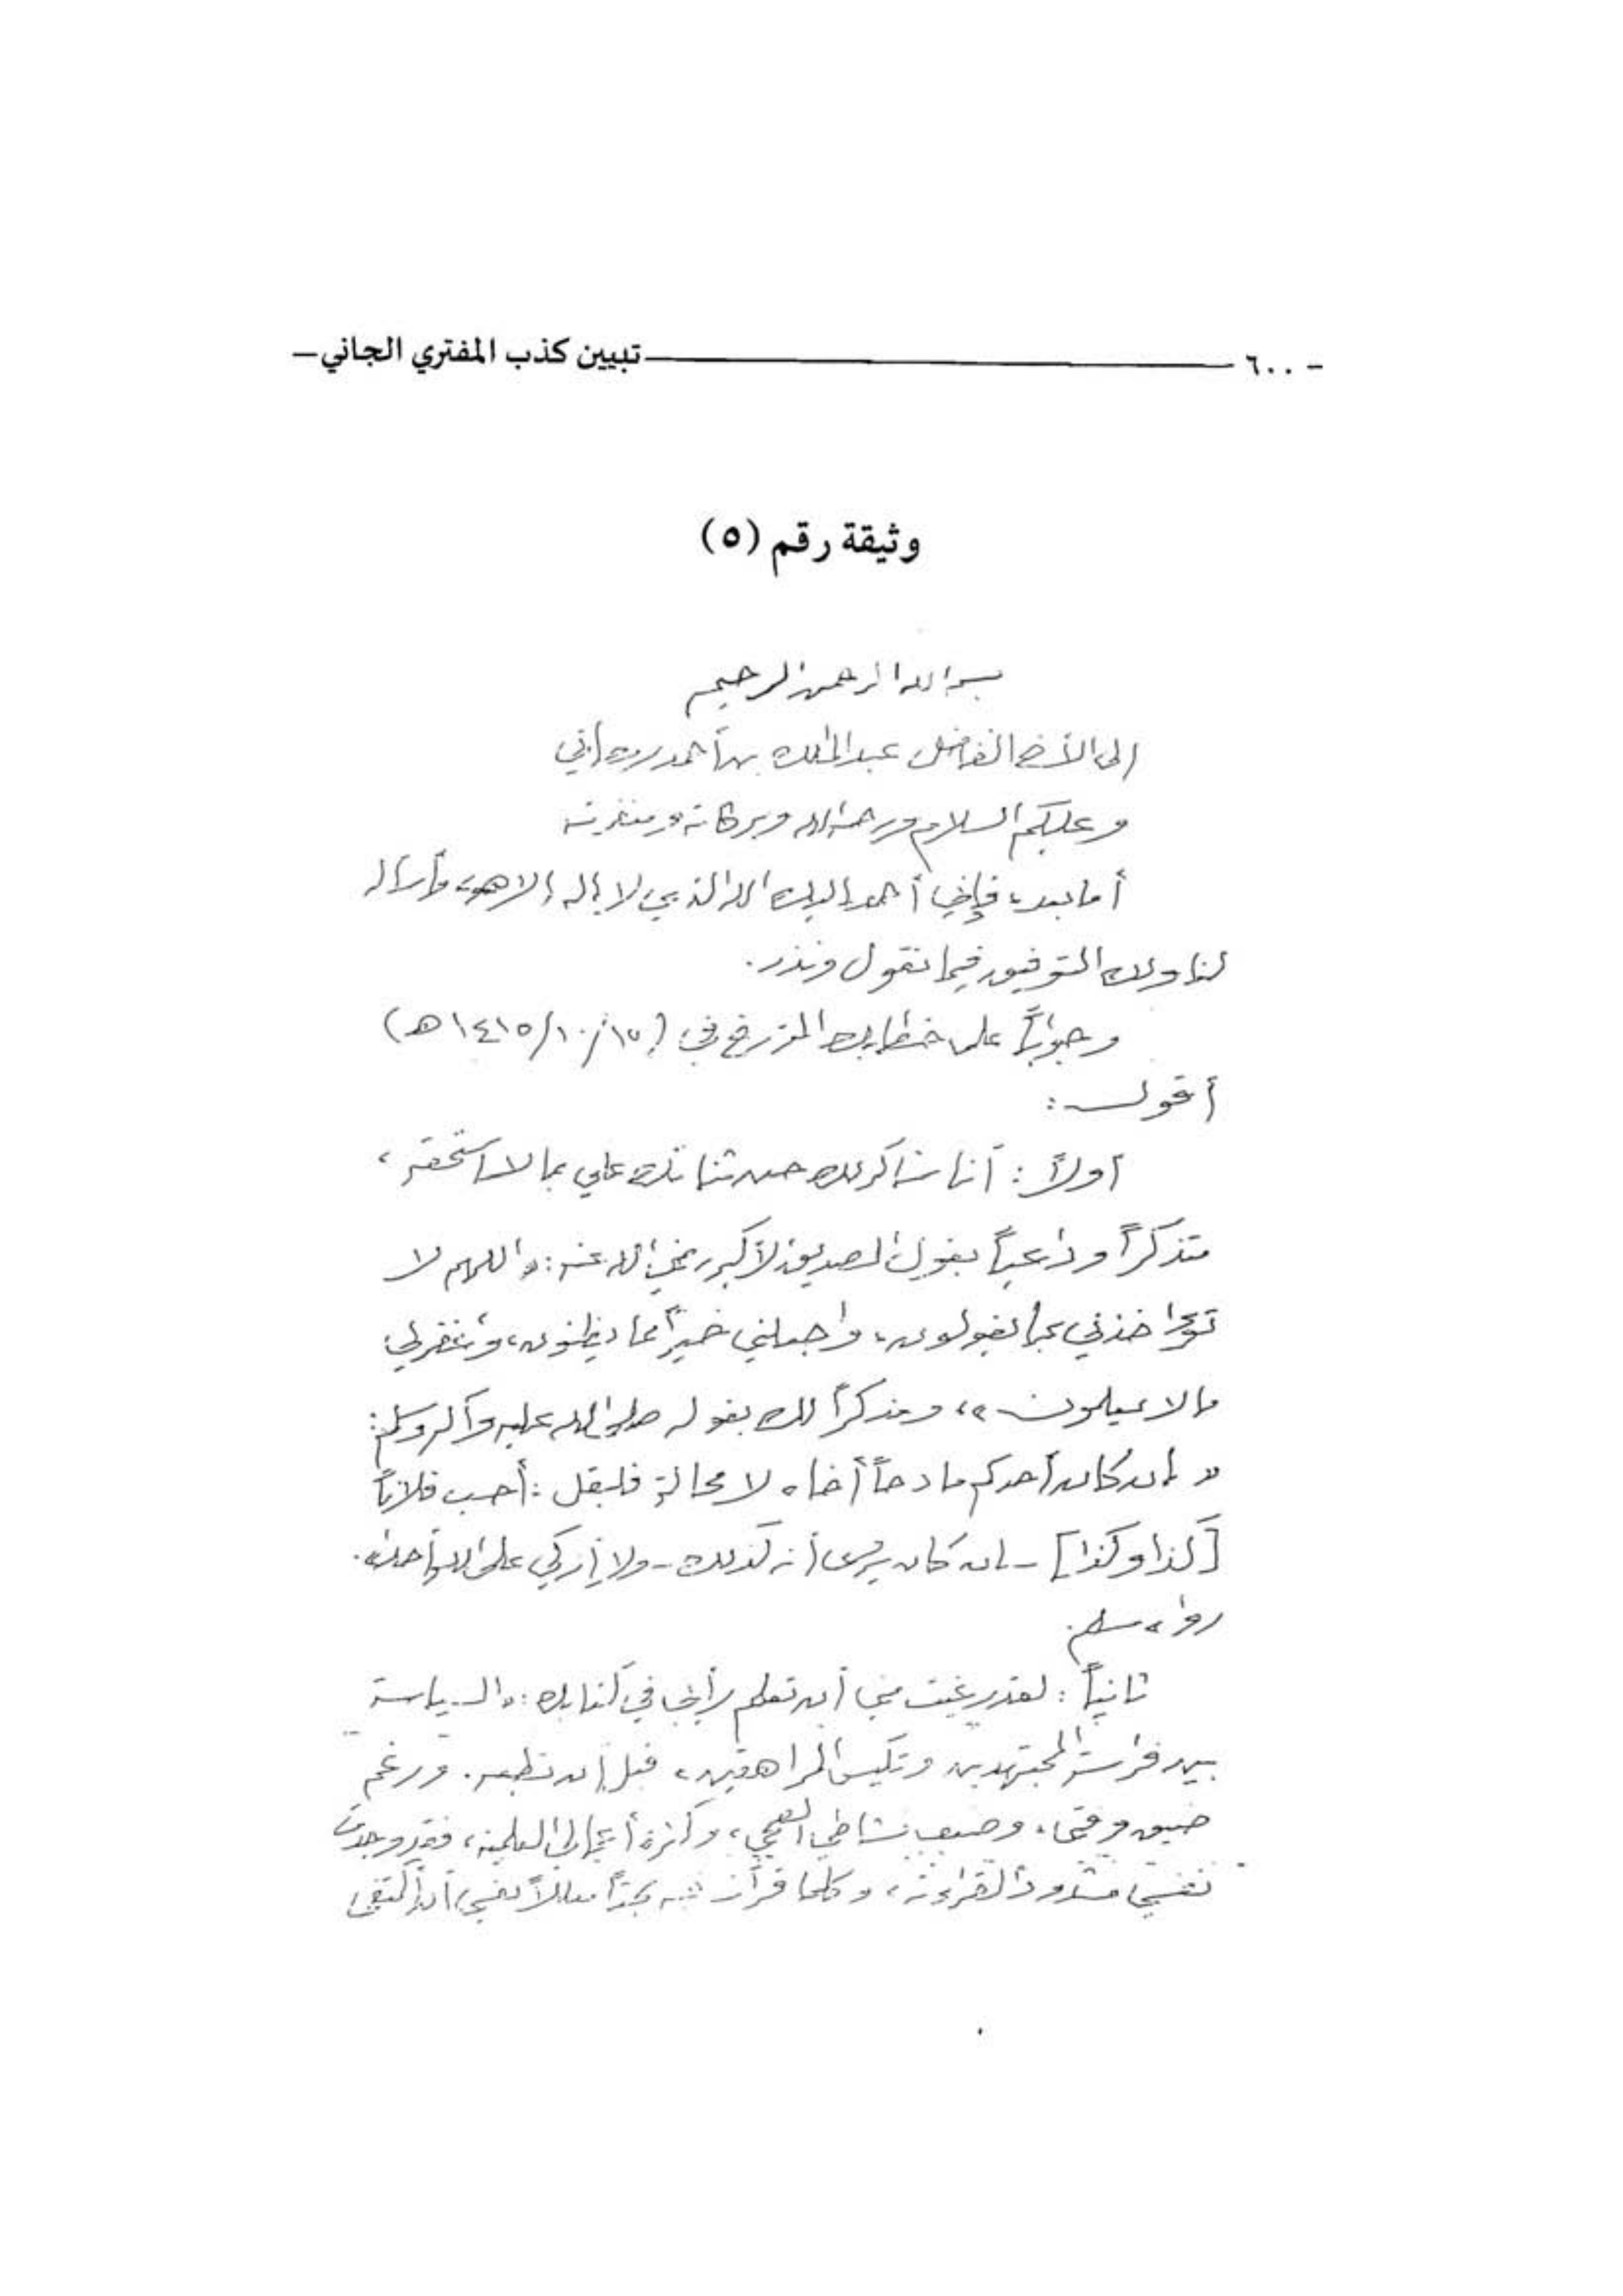 - ٦٠٠ تبيين كذب المفتري الجاني -
وثيقة رقم (٥)
بسم الله الرحمن الرحيم
إلى الأخ الفاضل عبدالملك بن أحمد رمضاني
وعليكم السلام ورحمة الله وبركاته ومغفرته
أما بعد، فإني أحمد إليك الله الذي لا إله إلا هو، وأسأله
لنا ولك التوفيق فيما نقول ونذر.
وجواباً على خطابك المؤرخ في (١٥/١٠/١٤١٥هـ)
أقول:
أولاً: أنا شاكر لك حسن ثنائك علي بما لا أستحقه،
متذكراً وداعياً بقول الصديق الأكبر رضي الله عنه: «اللهم لا
تؤاخذني بما يقولون، واجعلني خيراً مما يظنون، واغفر لي
ما لا يعلمون»، ومذكراً لك بقوله صلى الله عليه وآله وسلم:
«إن كان أحدكم مادحاً أخاه لا محالة فليقل: أحسب فلاناً
[كذا وكذا] - إن كان يرى أنه كذلك - ولا أزكي على الله أحداً».
رواه مسلم.
ثانياً: لقد رغبت مني أن تعلم رأيي في كتابك: «السياسة
بين فراسة المجتهدين وتكيس المراهقين» قبل أن تطبعه. ورغم
ضيق وقتي، وضعف نشاطي الصحي، وكثرة أعمالي العلمية، فقد وجدت
نفسي مشدوداً لقراءته، وكلما قرأت فيه بحثاً معللاً نفسي أن أكتفي